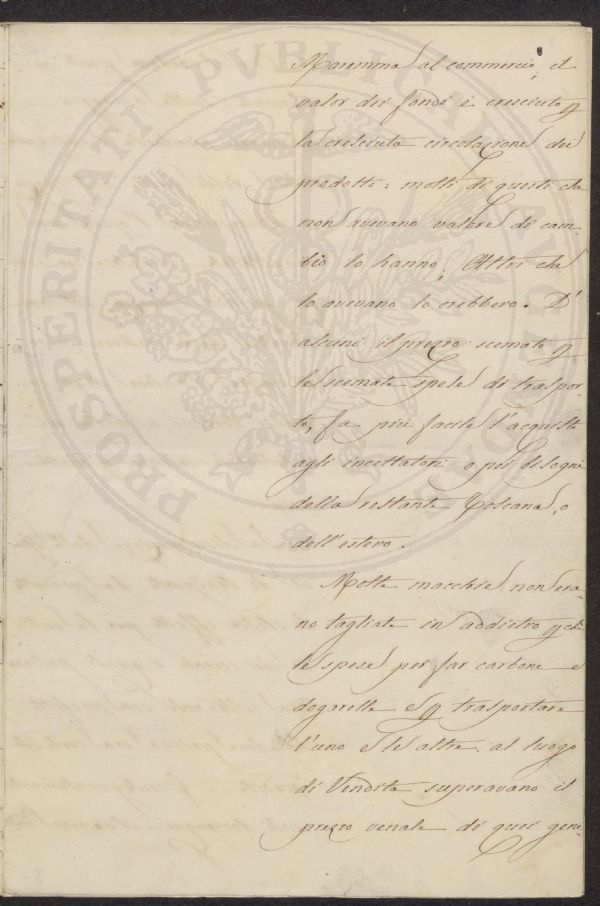 Maremma al commercio, il
valor dei fondi è cresciuto p
la cresciuta circolazione dei
prodotti; molti di questi che
non avevano valore di cam-
bio lo hanno; Altri che
lo avevano lo crebbero. D'
alcuni il prezzo scemato p
le scemate spese di traspor-
to, fa più facile l'acquisto
agli incettatori o pei bisogni
della restante Toscana, o
dell'estero.
Molte macchie non era-
no tagliate in addietro pchè
le spese per far carbone e
dogarelle e p trasportare
l'uno e le altre al luogo
di Vendita superavano il
prezzo venale di quei gene-
PROSPERITATI PVBLICAE AVGENDAE